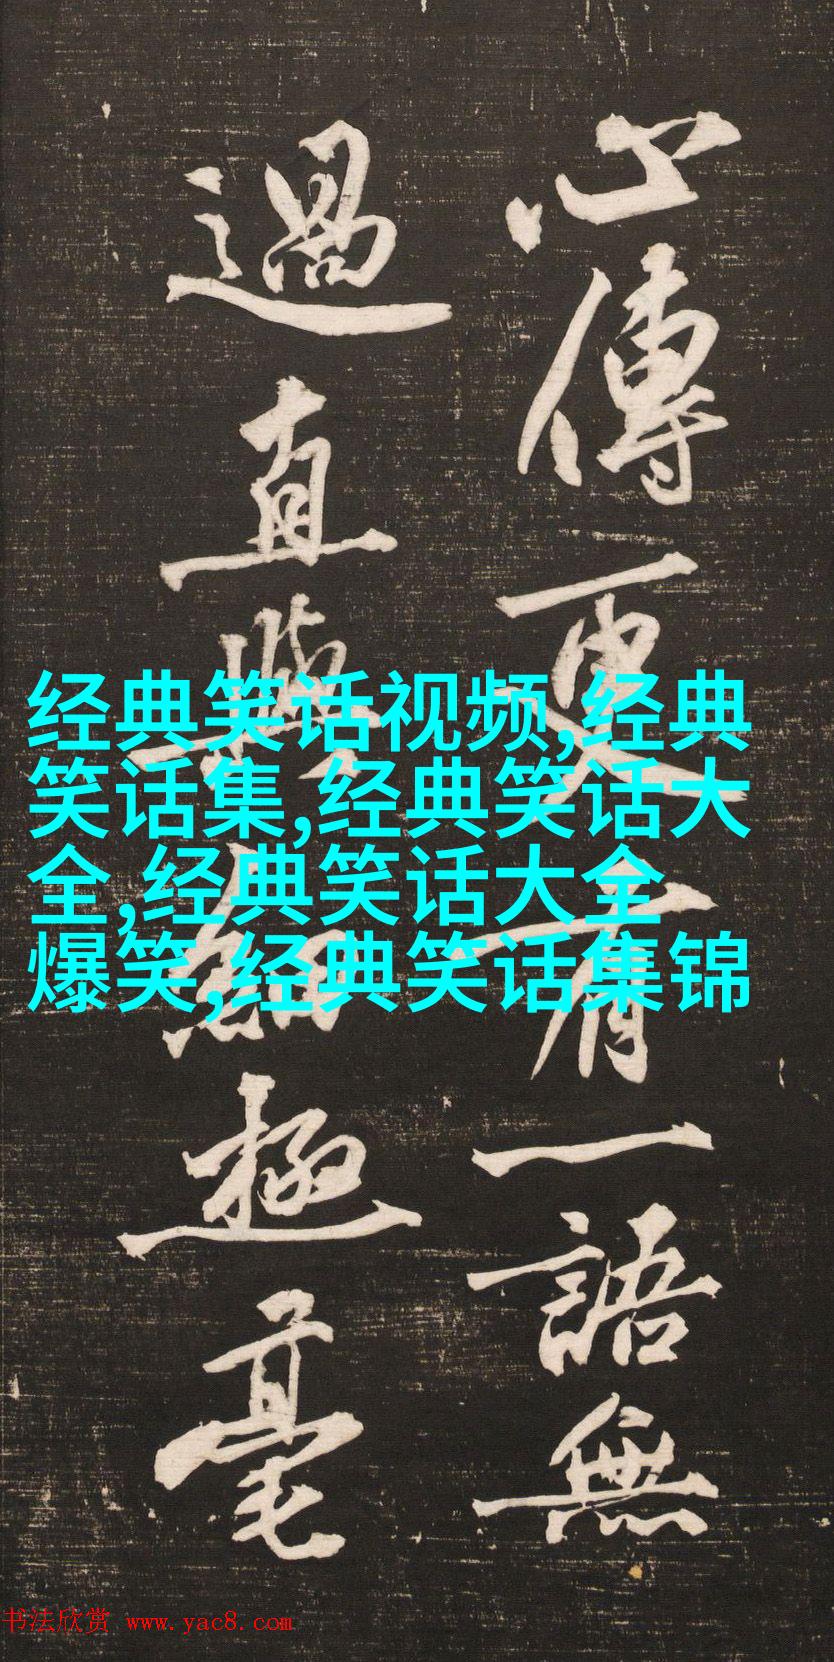 心傳更有一語無
過直與極毫
经典笑话视频,经典
笑话集,经典笑话大
全,经典笑话大全
爆笑,经典笑话集锦
书法欣赏 www.yac8.com